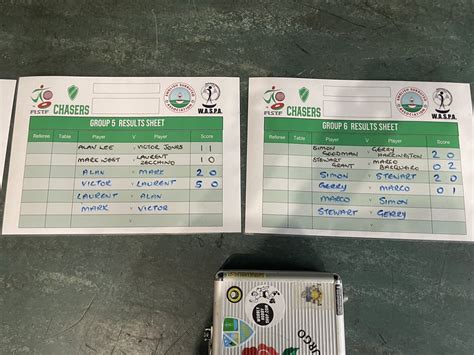 PISTF
CHASERS
ENGLISH SUBBUTEO ASSOCIATION
W.A.S.P.A.
GROUP 5 RESULTS SHEET
Referee Table Player V Player Score
ALAN LEE v VICTOR JONES 1 1
MARK WEST v LAURENT 1 0
ALAN v MARK 2 0
VICTOR v LAURENT 5 0
LAURENT v ALAN
MARK v VICTOR
CHASERS
W.A.S.P.A.
GROUP 6 RESULTS SHEET
Referee Table Player V Player Score
SIMON v GERRY HARRINGTON 2 0
STEWART GRANT v MARCO 0 2
SIMON v STEWART 2 0
GERRY v MARCO 0 1
MARCO v SIMON
STEWART v GERRY